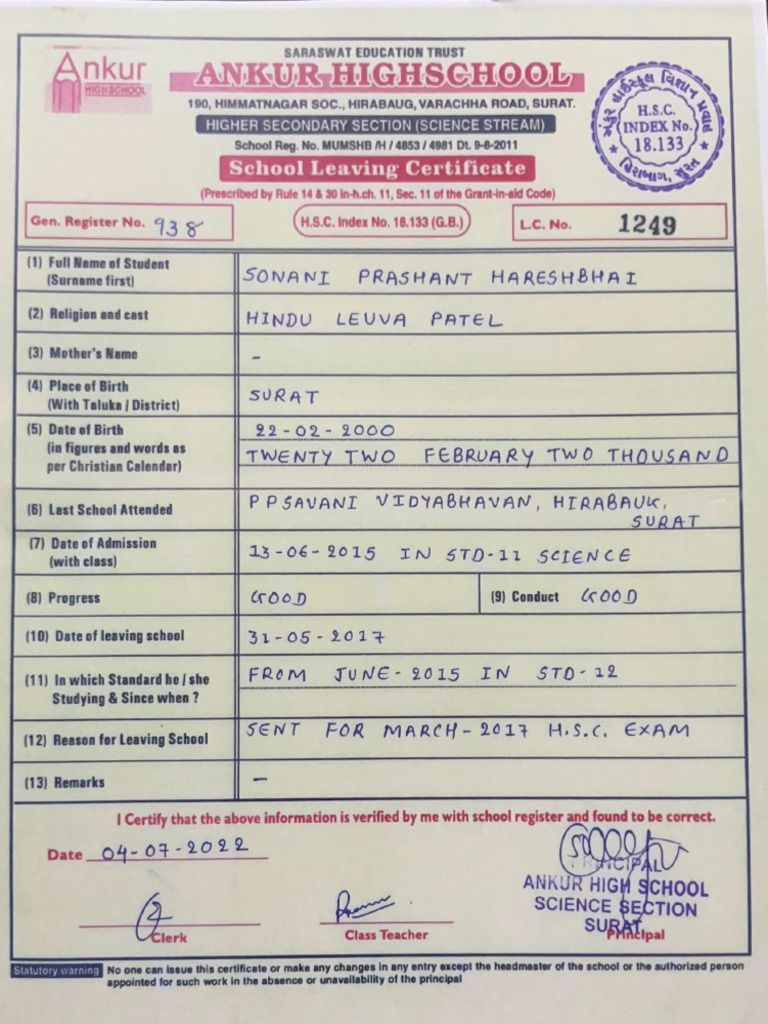 Ankur
HIGHSCHOOL
SARASWAT EDUCATION TRUST
ANKUR HIGHSCHOOL
190, HIMMATNAGAR SOC., HIRABAUG, VARACHHA ROAD, SURAT.
HIGHER SECONDARY SECTION (SCIENCE STREAM)
School Reg. No. MUMSHB /H / 4853 / 4981 Dt. 9-8-2011
School Leaving Certificate
(Prescribed by Rule 14 & 30 in-h.ch. 11, Sec. 11 of the Grant-in-aid Code)
અંકુર હાઈસ્કૂલ વિજ્ઞાન પ્રવાહ
H.S.C.
INDEX No.
18.133
હિરાબાગ, સુરત
Gen. Register No. 938
H.S.C. Index No. 18.133 (G.B.)
L.C. No. 1249
(1) Full Name of Student
(Surname first)
SONANI PRASHANT HARESHBHAI
(2) Religion and cast
HINDU LEUVA PATEL
(3) Mother's Name
-
(4) Place of Birth
(With Taluka / District)
SURAT
(5) Date of Birth
(in figures and words as
per Christian Calendar)
22-02-2000
TWENTY TWO FEBRUARY TWO THOUSAND
(6) Last School Attended
P P SAVANI VIDYABHAVAN, HIRABAUG,
SURAT
(7) Date of Admission
(with class)
13-06-2015 IN STD-11 SCIENCE
(8) Progress
GOOD
(9) Conduct GOOD
(10) Date of leaving school
31-05-2017
(11) In which Standard he / she
Studying & Since when ?
FROM JUNE-2015 IN STD-12
(12) Reason for Leaving School
SENT FOR MARCH-2017 H.S.C. EXAM
(13) Remarks
-
I Certify that the above information is verified by me with school register and found to be correct.
Date 04-07-2022
PRINCIPAL
ANKUR HIGH SCHOOL
SCIENCE SECTION
SURAT
Clerk
Class Teacher
Principal
Statutory warning No one can issue this certificate or make any changes in any entry except the headmaster of the school or the authorized person
appointed for such work in the absence or unavailability of the principal